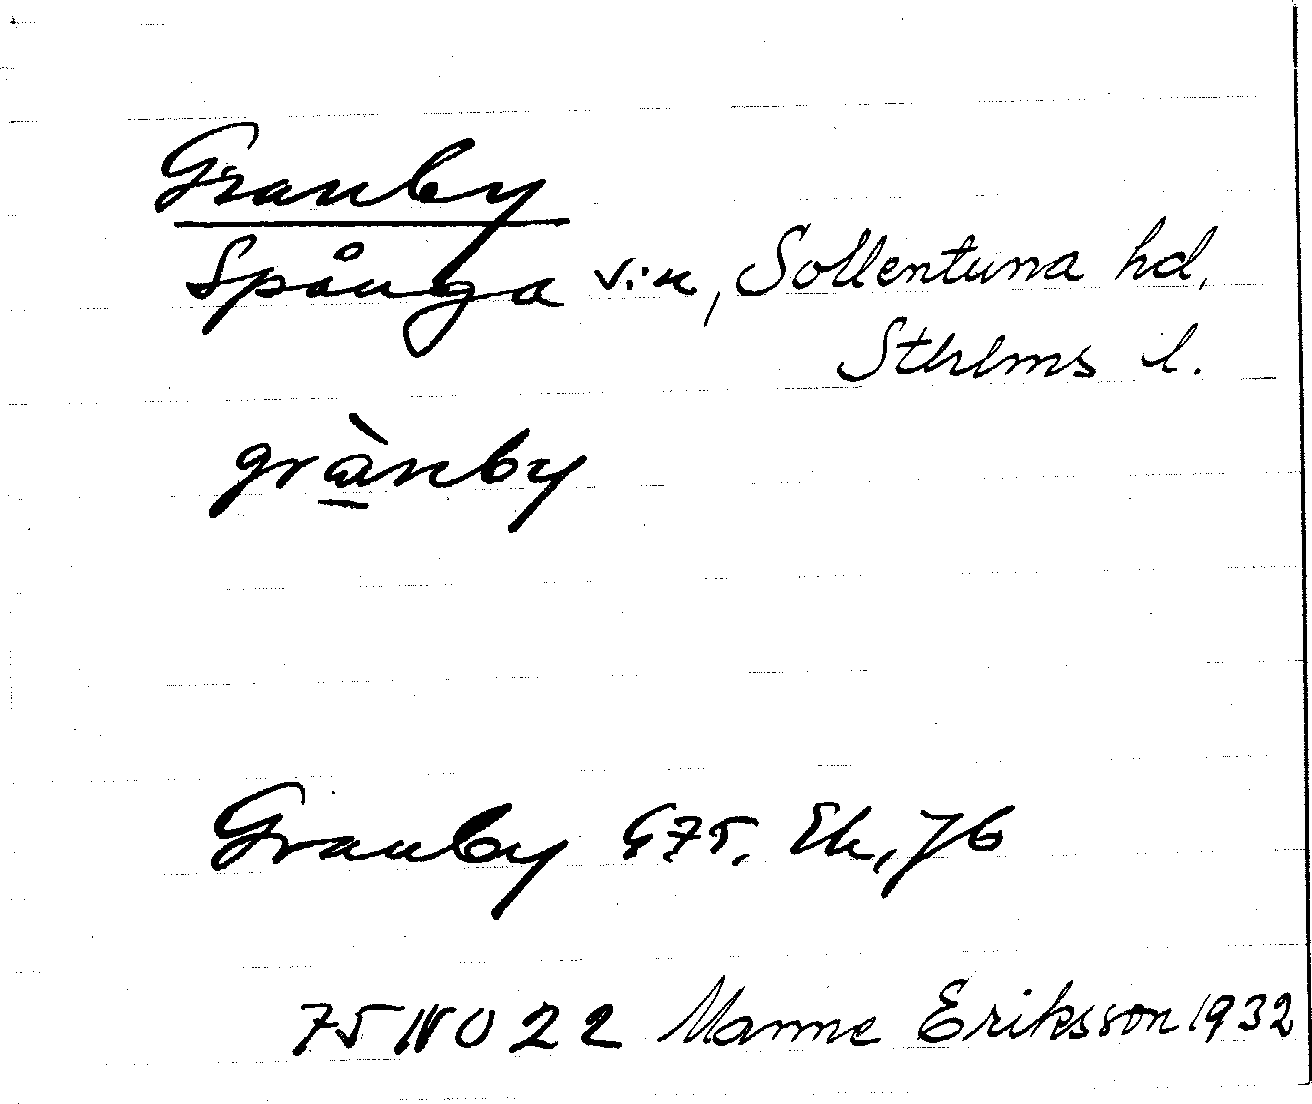 Granby
Spånga s:n, Sollentuna hd,
Sthlms l.
grànby
Granby G75. Ek, Jb
75 NO 22 Manne Eriksson 1932